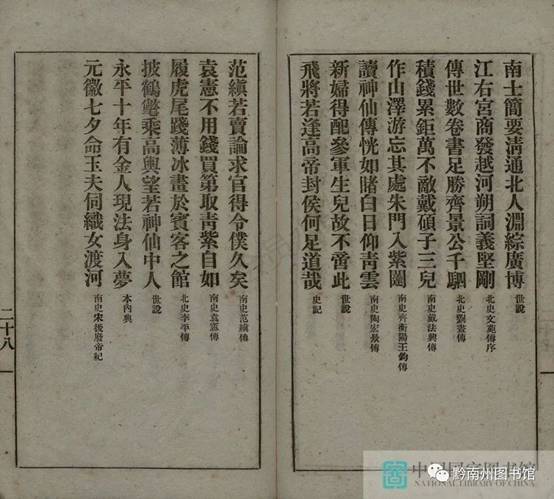 南士簡要淸通北人淵綜廣博 世說
江右宮商發越河朔詞義堅剛 北史文苑傳序
傳世數卷書足勝齊景公千駟 北史劉晝傳
積錢累鉅萬不敵戴碩子三兒 南史戴法興傳
作山澤游忘其處朱門入紫闥 南史齊衡陽王鈞傳
讀神仙傳恍如睹白日仰靑雲 南史陶宏景傳
新婦得配參軍生兒故不啻此 世說
飛將若逢高帝封侯何足道哉 史記
范縝若賣論求官得令僕久矣 南史范縝傳
袁憲不用錢買第取靑紫自如 南史袁憲傳
履虎尾踐薄冰畫於賓客之館 北史李平傳
披鶴氅乘高輿望若神仙中人 世說
永平十年有金人現法身入夢 本內典
元徽七夕命玉夫伺織女渡河 南史宋後廢帝紀
二十八
中國國家圖書館
NATIONAL LIBRARY OF CHINA
黔南州图书馆